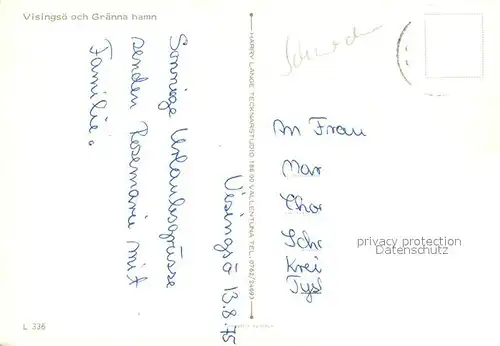 Visingsö och Gränna hamn
Visingsö 13.8.75
Sonnige Urlaubsgrüsse
senden Rosemarie mit
Familie.
HARRY LANGE TECKNARSTUDIO 186 00 VALLENTUNA TEL. 0762/34693
Schweden
An Frau
Mar
Thor
Schr
Krei
Tysl
privacy protection
Datenschutz
L 336